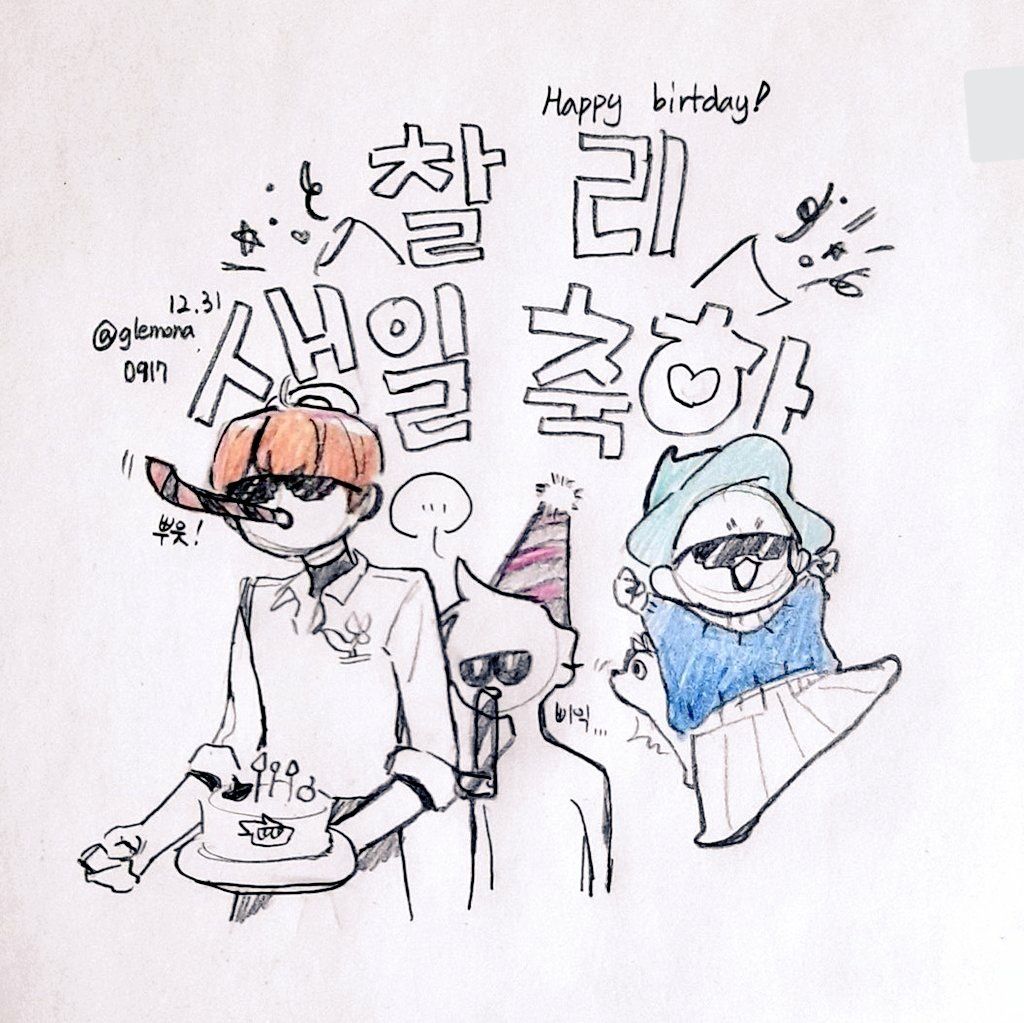 Happy birtday!
찰리
생일 축하
12.31
@glemona
0917
뿌웃!
...
삐익...